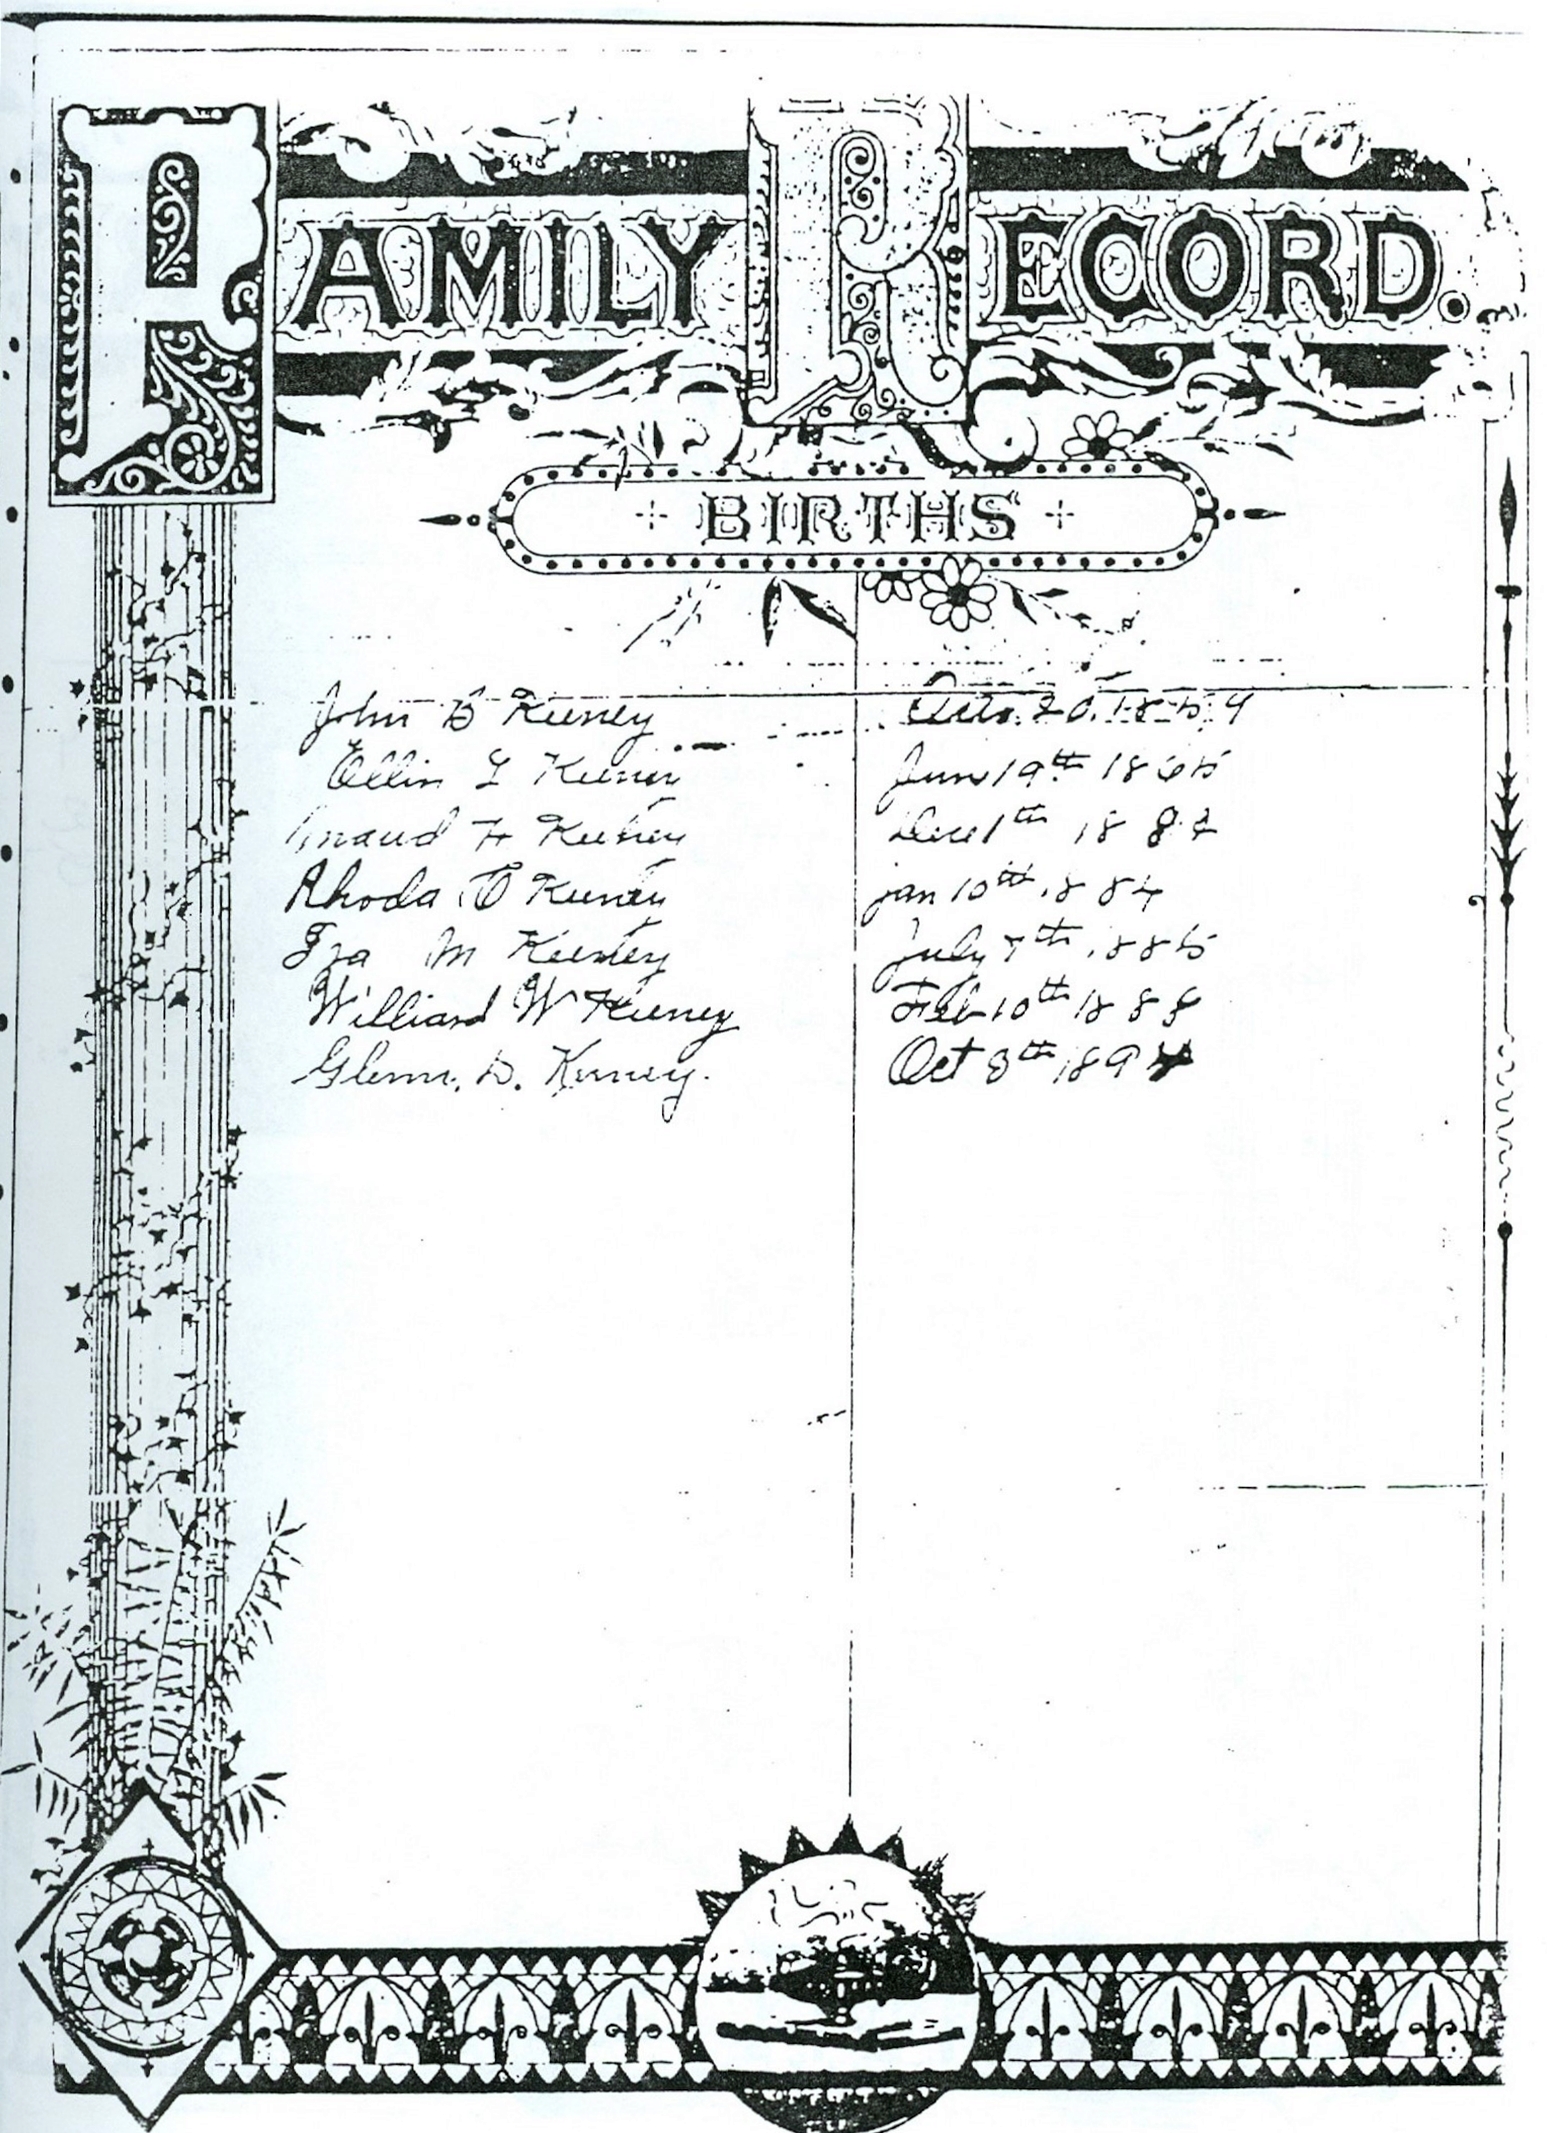 FAMILY RECORD.
BIRTHS
John B Keeney 20, 1854
Ellin L Keeney June 19th 1865
Maud H Keeney Dec 1th 1882
Rhoda O Keeney jan 10th 1884
Ira M Keeney July 7th 1885
Williard W Keeney Feb 10th 1888
Glenn. D. Keeney. Oct 8th 1894